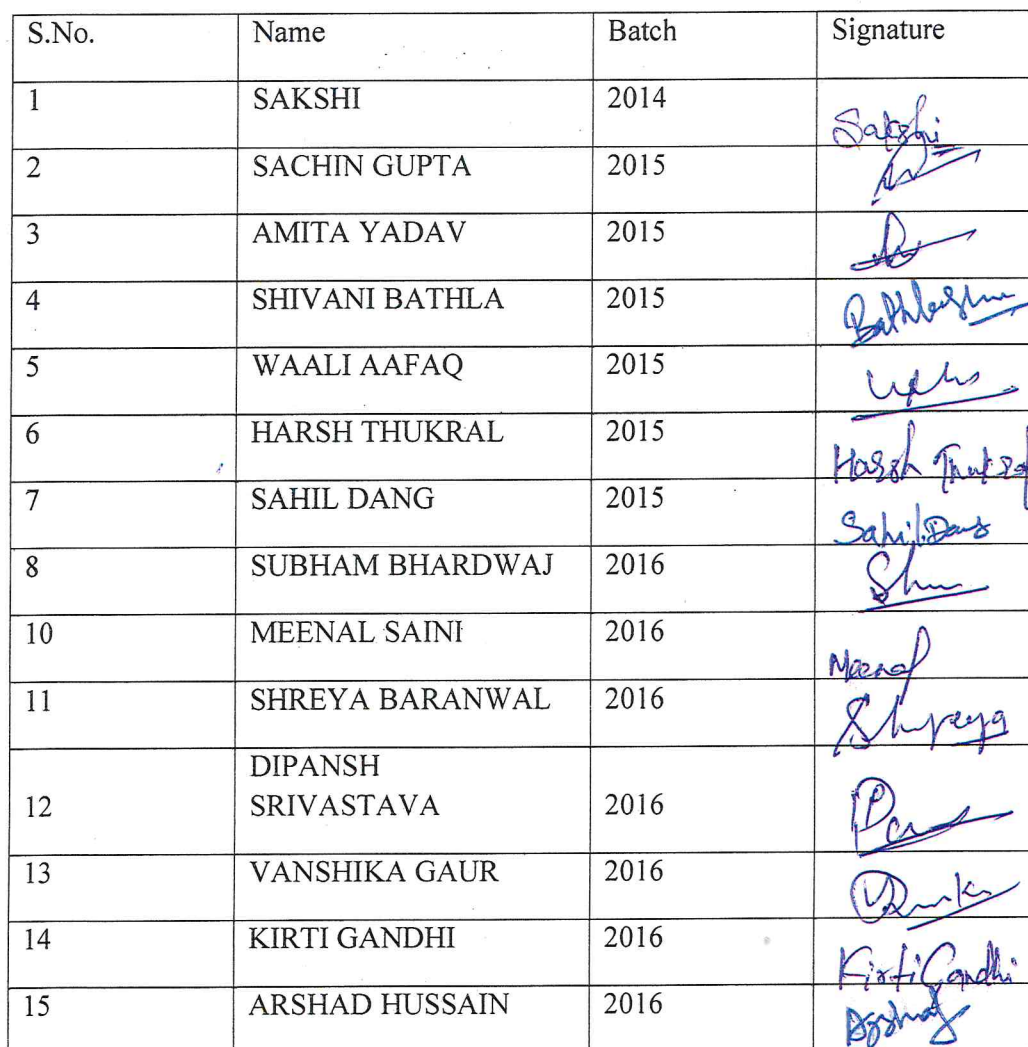 S.No. Name Batch Signature
1 SAKSHI 2014 Sakshi
2 SACHIN GUPTA 2015
3 AMITA YADAV 2015
4 SHIVANI BATHLA 2015
5 WAALI AAFAQ 2015
6 HARSH THUKRAL 2015 Harsh Thukral
7 SAHIL DANG 2015 Sahil Dang
8 SUBHAM BHARDWAJ 2016
10 MEENAL SAINI 2016 Meenal
11 SHREYA BARANWAL 2016 Shreya
DIPANSH
12 SRIVASTAVA 2016
13 VANSHIKA GAUR 2016
14 KIRTI GANDHI 2016 Kirti Gandhi
15 ARSHAD HUSSAIN 2016 Arshad